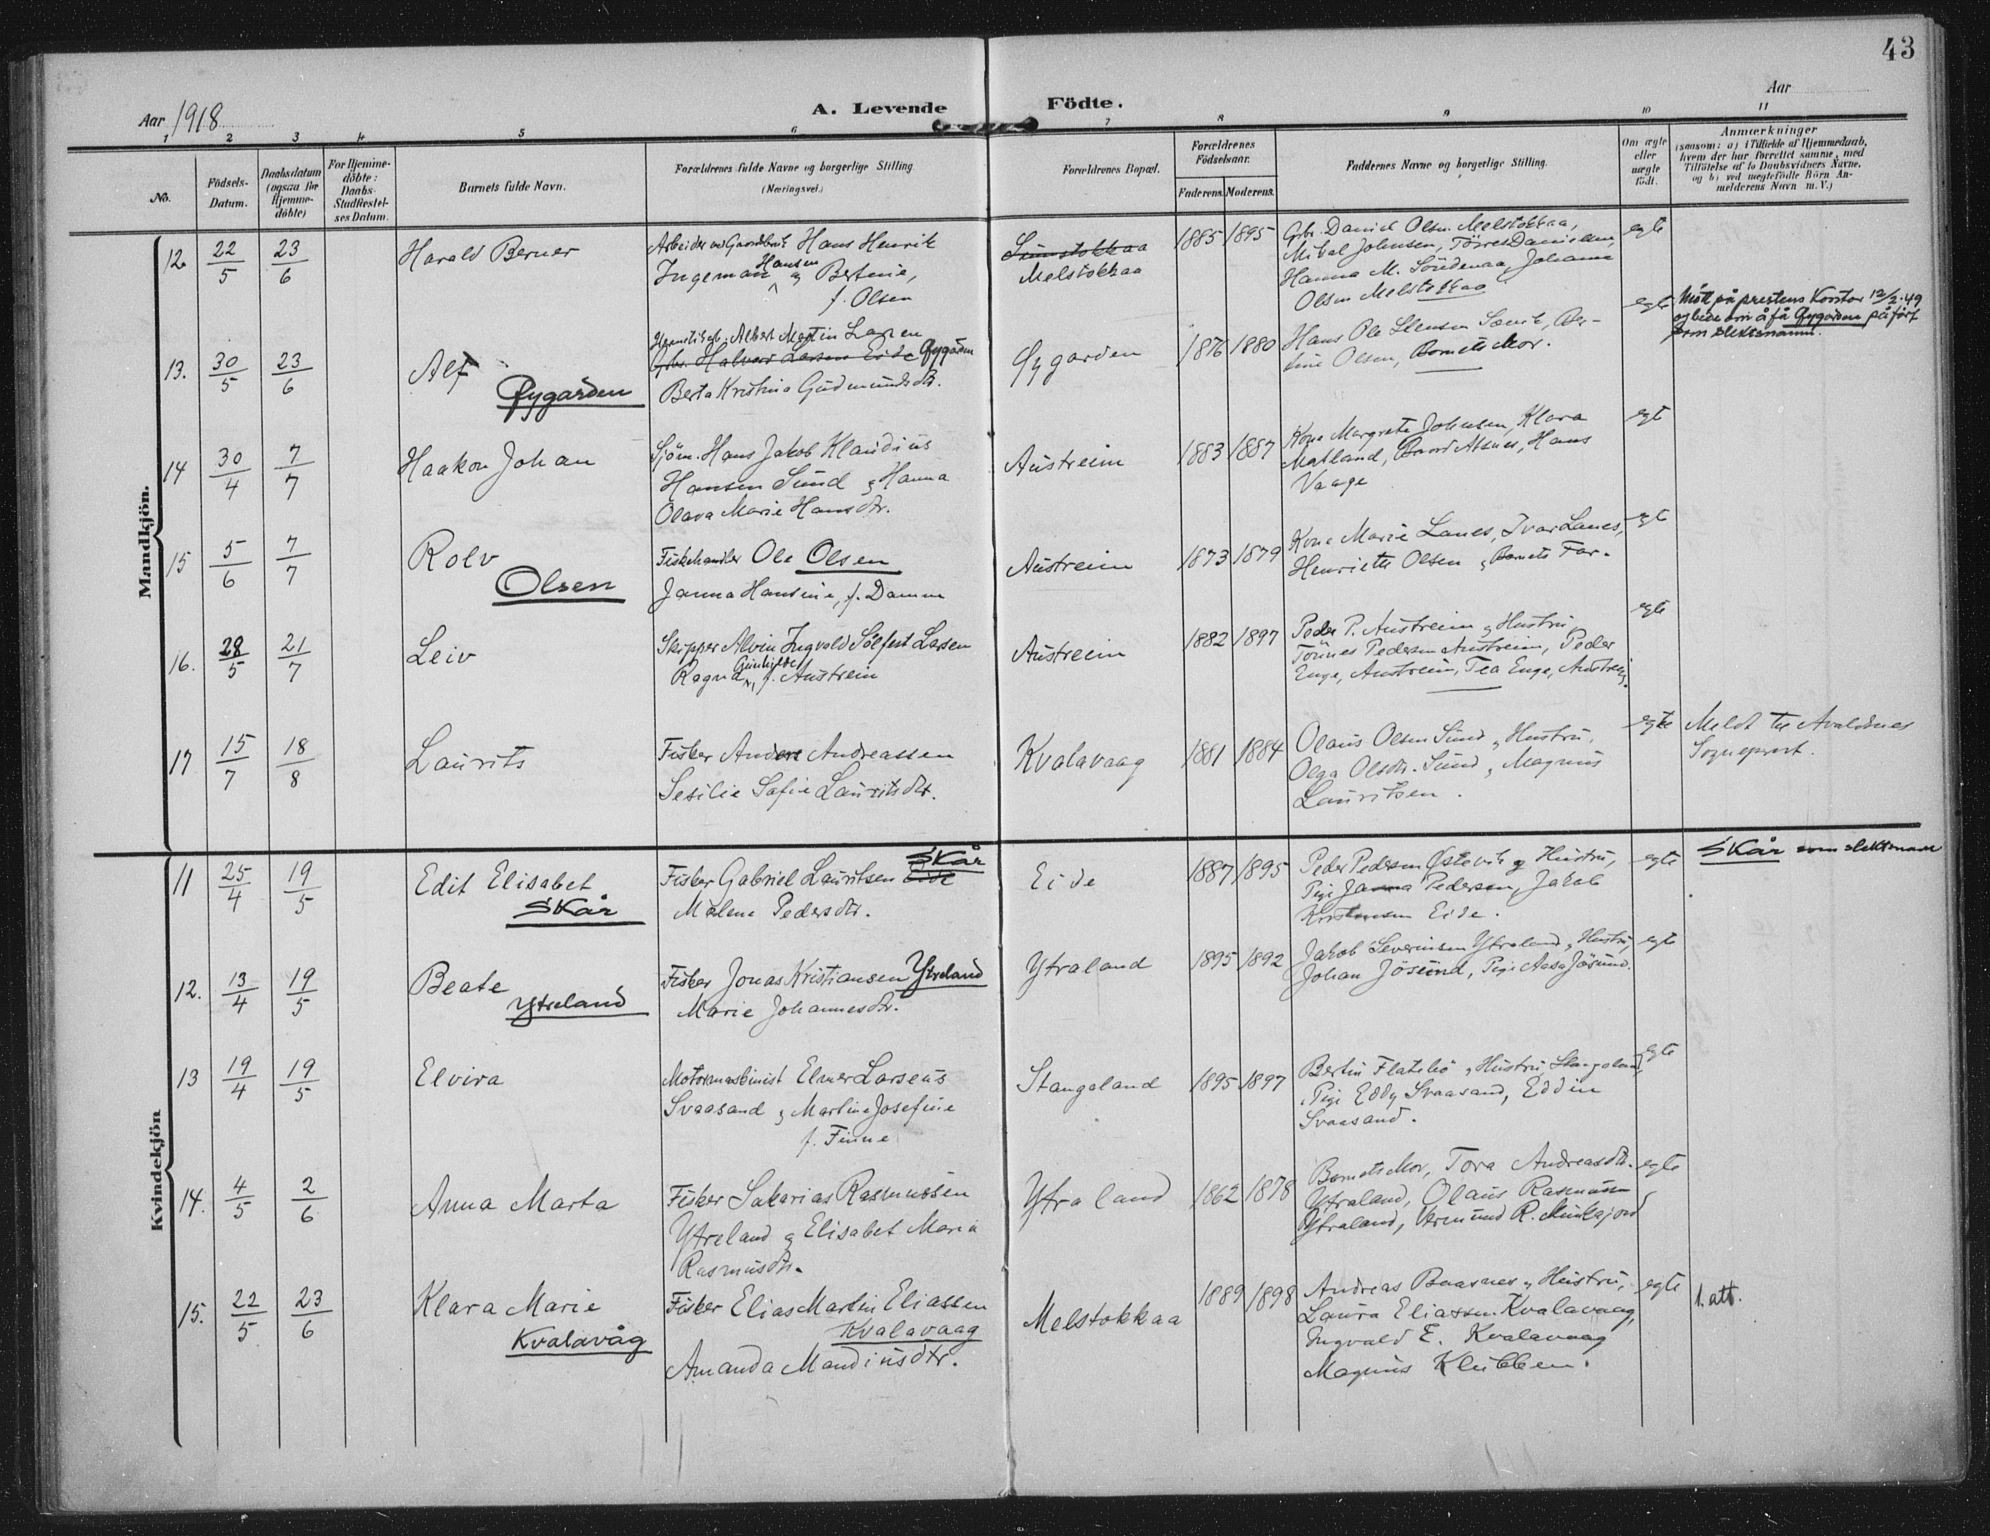 43
Aar 1918
A. Levende Födte.
Aar
1 2 3 4 5 6 7 8 9 10 11
No.
Födsels-
Datum.
Daabsdatum
(ogsaa for
Hjemme-
döbte)
For Hjemme-
döbte:
Daabs-
Stadfæstel-
ses Datum.
Barnets fulde Navn.
Forældrenes fulde Navne og borgerlige Stilling.
(Næringsvei.)
Forældrenes Bopæl.
Forældrenes
Födselsaar.
Faderens. Moderens.
Faddernes Navne og borgerlige Stilling.
Om ægte
eller
uægte
födt.
Anmærkninger
(saasom: a) i Tilfælde af Hjemmedaab,
hvem der har forrettet samme, med
Tilföielse af to Daabsvidners Navne.
og b) ved uægtefödte Börn An-
melderens Navn m. V.)
Mandkjön.
12 22/5 23/6 Harald Berner
Arbeider ved Gaardsbruk Hans Henrik
Ingeman Hansen og Bertine,
f. Olsen
Sunstokkaa
Melstokkaa
1885 1895
Grbr. Daniel Olsen Melstokkaa,
Mikal Johnsen, Törres Danielsen,
Hanna M. Söndenaa, Johanna
Olsen Melstokkaa
egte
13. 30/5 23/6 Alf
Øygarden
Albert Martin Larsen
Grbr. Halvor Larsen Eide Øygarden
Berta Kristina Gudmundsdtr.
Øygarden
1876 1880
Hans Ole Stensen Sævik, Ber-
tine Olsen, Barnets Mor.
egte
Mött på prestens Kontor 12/2-49
og bedt om å få Øygarden påfört
som slektsnamn.
14 30/4 7/7 Haakon Johan
Sjöm. Hans Jakob Klaudius
Hansen Sund og Hanna
Olava Marie Hansdtr.
Austreim
1883 1887
Kone Margrete Johnsen, Klara
Matland, Hans
Vaage
egte
15 5/6 7/7 Rolv
Olsen
Fiskehandler Ole Olsen
Janna Hansine, f. Damm
Austreim
1873 1879
Kone Marie Lanes, Ivar Lanes,
Henriette Olsen og Barnets Far.
egte
16. 28/5 21/7 Leiv
Skipper Alvin Ingvald Sölfest Larsen
Ragna Gunhilde, f. Austrein
Austreim
1882 1897
Peder P. Austreim og Hustru
Tönnes Pedersen Austreim, Peder
Enge, Austreim, Tea Enge, Austreim.
egte
17 15/7 18/8 Laurits
Fisker Anders Andreassen
Sesilie Sofie Lauritsdtr.
Kvalavaag
1881 1884
Olaus Olsen Sund og Hustru,
Olga Olsdtr. Sund, Magnus
Lauritsen.
egte
Meldt til Avaldsnes
Sogneprest.
Kvindekjön
11 25/4 19/5 Edit Elisabet
Skår
Fisker Gabriel Lauritsen Eide Skår
Malene Pedersdtr.
Eide
1887 1895
Peder Pedersen Østevik og Hustru,
Pige Janna Pedersen, Jakob
Kristensen Eide.
egte
Skår som slektsnavn
12. 13/4 19/5 Beate
Ytreland
Fisker Jonas Kristiansen Ytreland
Marie Johannesdtr.
Ytraland
1895 1892
Jakob Severinsen Ytraland og Hustru,
Johan Jösund, Pige Aasa Jösund.
egte
13 19/4 19/5 Elvira
Motormaskinist Elmer Larsens
Svaasand og Martine Josefine
f. Finne
Stangeland
1895 1897
Bertin Flatebö og Hustru, Stangeland,
Pige Eddy Svaasand, Eddin
Svaasand.
egte
14. 4/5 2/6 Anna Marta
Fisker Sakarias Rasmussen
Ytreland og Elisabet Maria
Rasmusdtr.
Ytraland
1862 1878
Barnets Mor, Tora Andreasdtr.
Ytraland, Olaus Rasmussen
Ytraland, Vermund R. Munkejord
egte
15. 22/5 23/6 Klara Marie
Kvalavåg
Fisker Elias Martin Eliassen
Kvalavaag
Amanda Mandiusdtr.
Melstokkaa
1889 1898
Andreas Baasnes og Hustru,
Laura Eliassen Kvalavaag,
Ingvald E. Kvalavaag
Magnus Klubben.
egte
1. att.